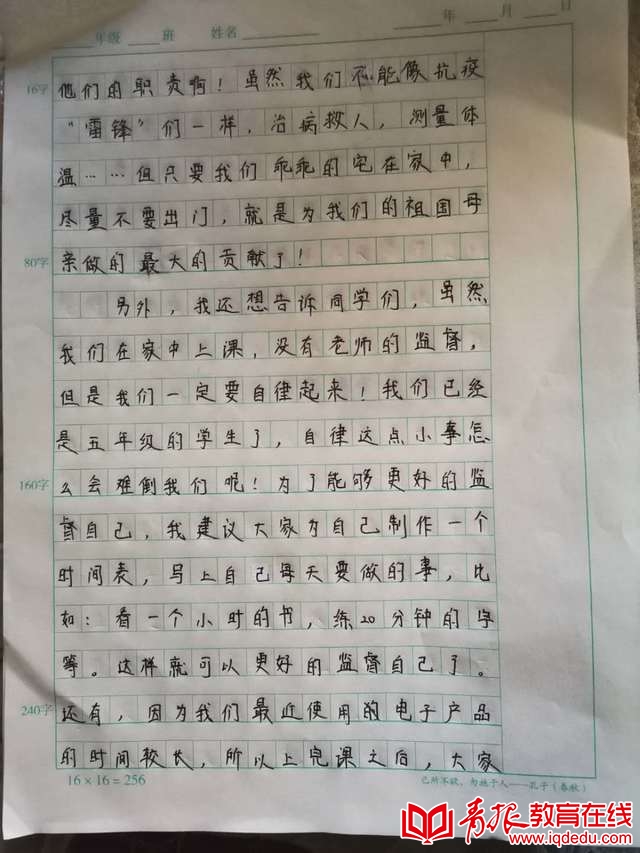 年级 班 姓名 年 月 日
16字 他们的职责啊！虽然我们不能像抗疫
“雷锋”们一样，治病救人，测量体
温……但只要我们乖乖的宅在家中，
尽量不要出门，就是为我们的祖国母
80字 亲做的最大的贡献了！
另外，我还想告诉同学们，虽然
我们在家中上课，没有老师的监督，
但是我们一定要自律起来！我们已经
是五年级的学生了，自律这点小事怎
160字 么会难倒我们呢！为了能够更好的监
督自己，我建议大家为自己制作一个
时间表，写上自己每天要做的事，比
如：看一个小时的书，练20分钟的字
等。这样就可以更好的监督自己了。
240字 还有，因为我们最近使用的电子产品
的时间较长，所以上完课之后，大家
16×16=256 己所不欲，勿施于人——孔子（春秋）
青报教育在线
www.iqdedu.com